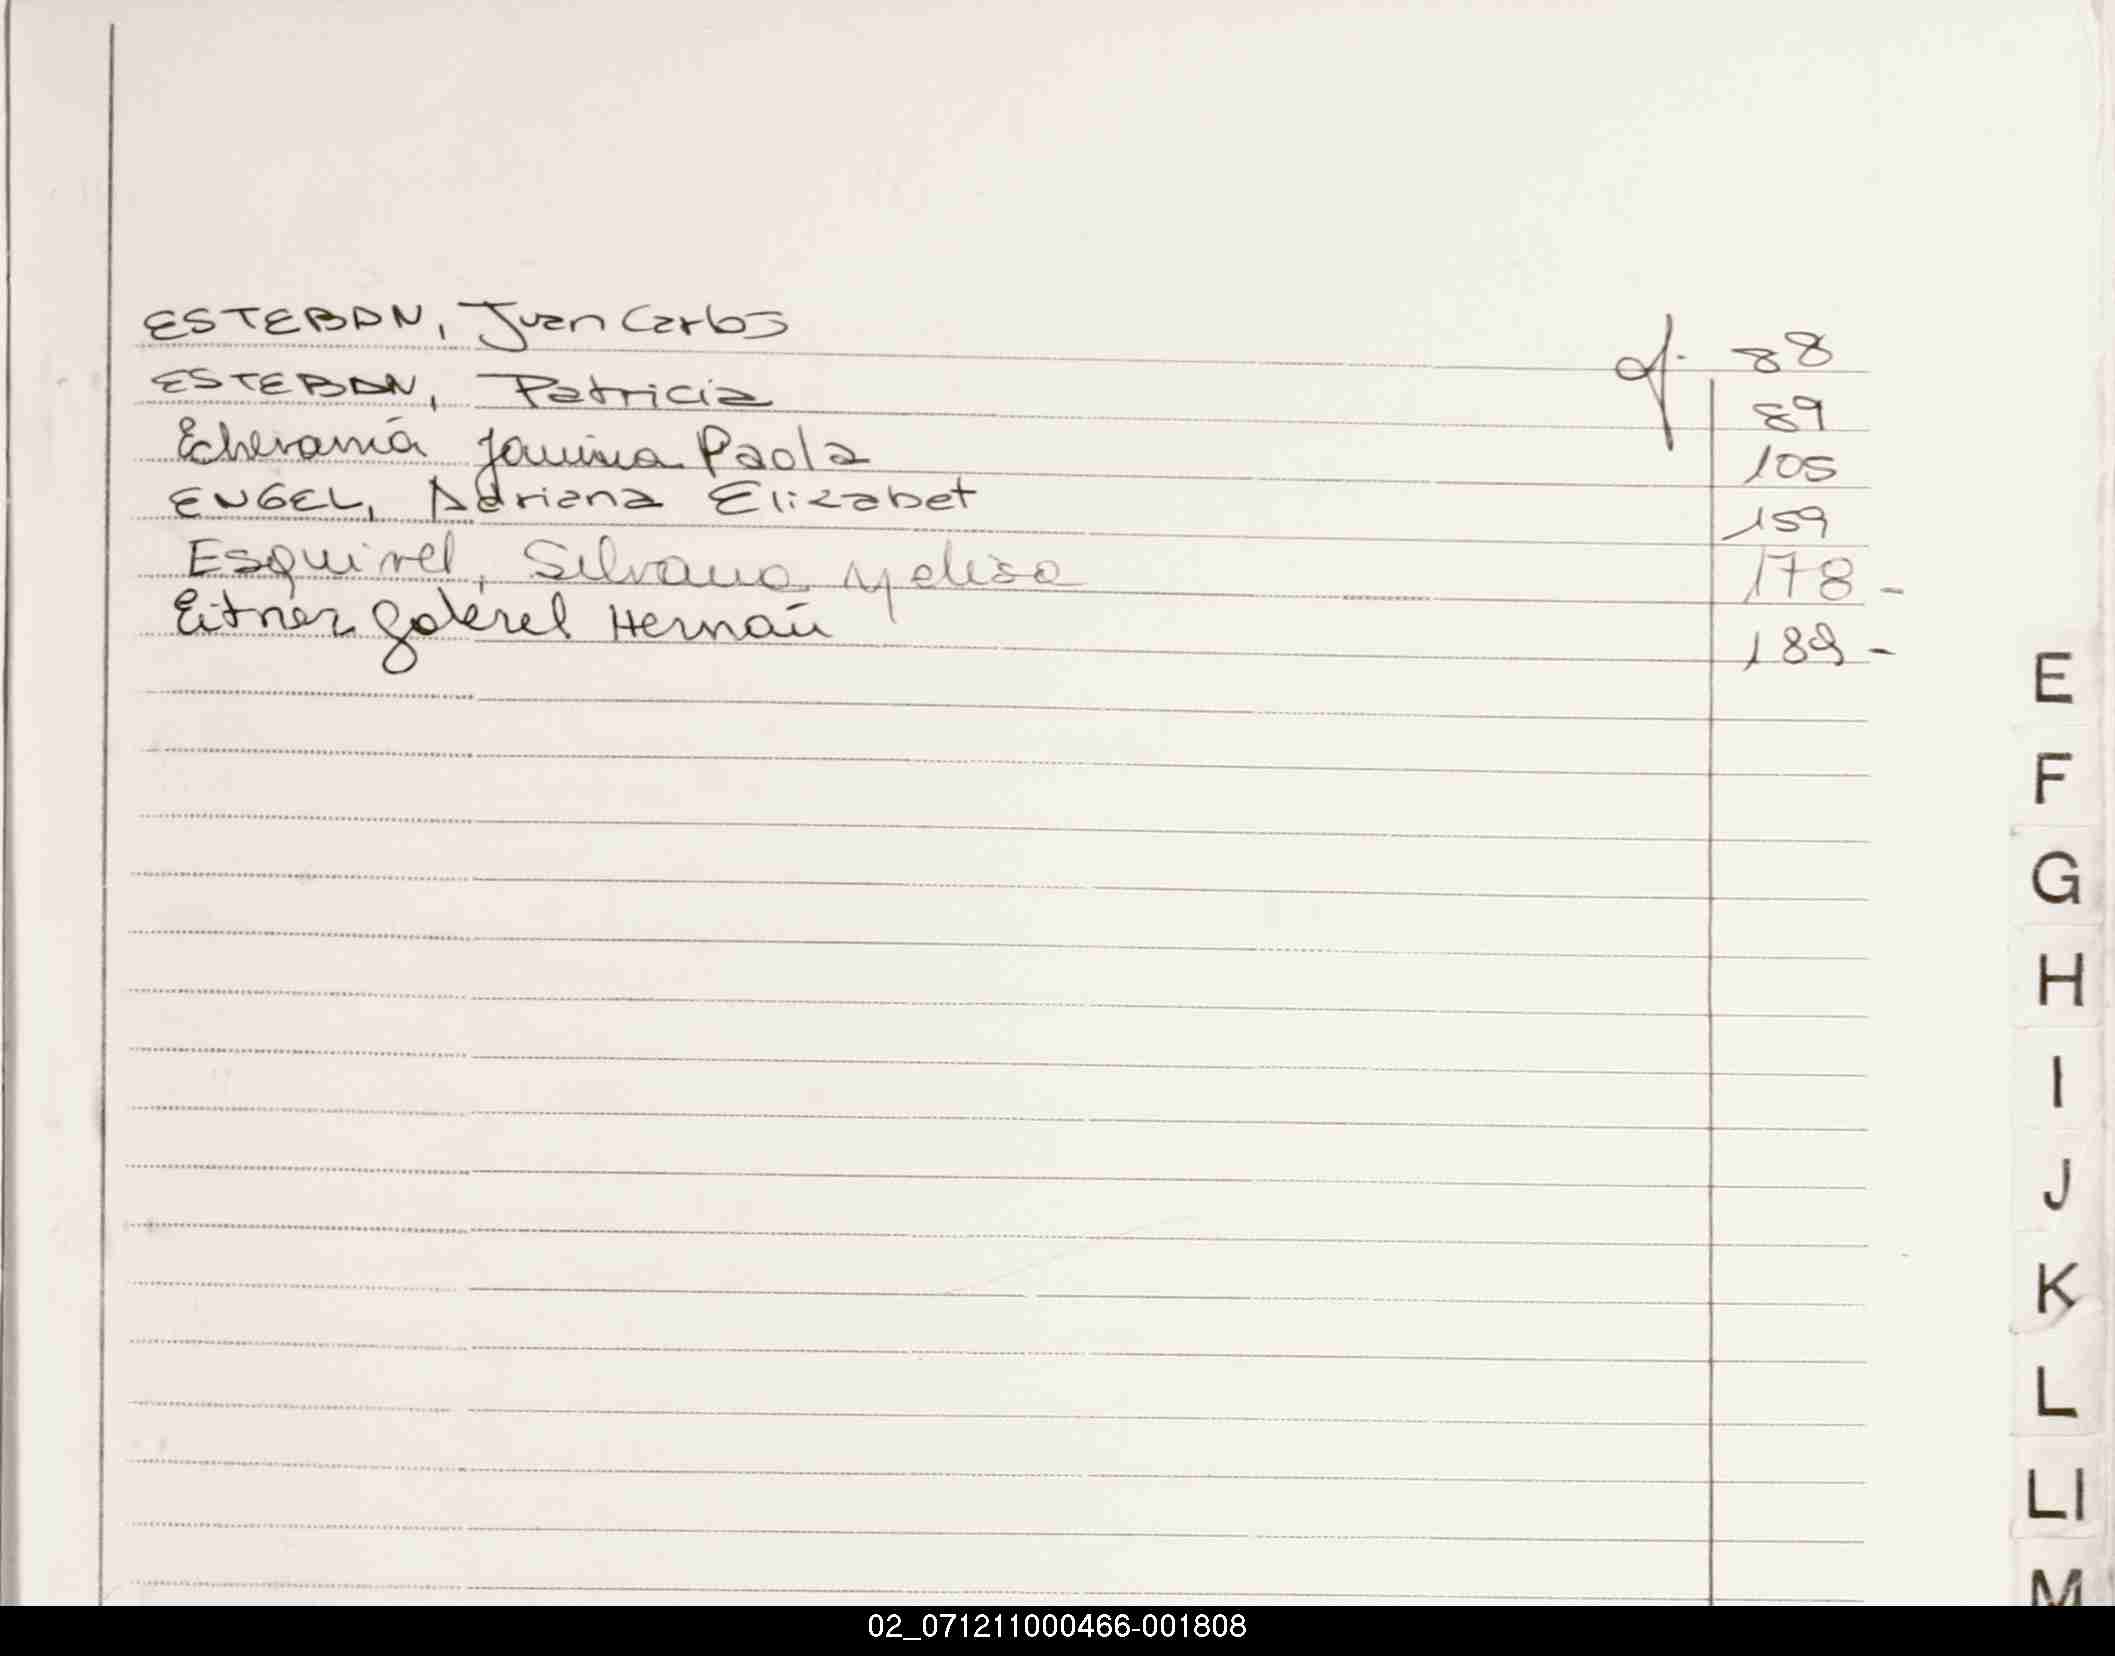 ESTEBAN, Juan Carlos f. 88
ESTEBAN, Patricia 89
Echevarría Janina Paola 105
ENGEL, Adriana Elizabet 159
Esquivel, Silvana Melisa 178 -
Eitner Gabriel Hernán 189 -
E
F
G
H
I
J
K
L
Ll
M
02_071211000466-001808